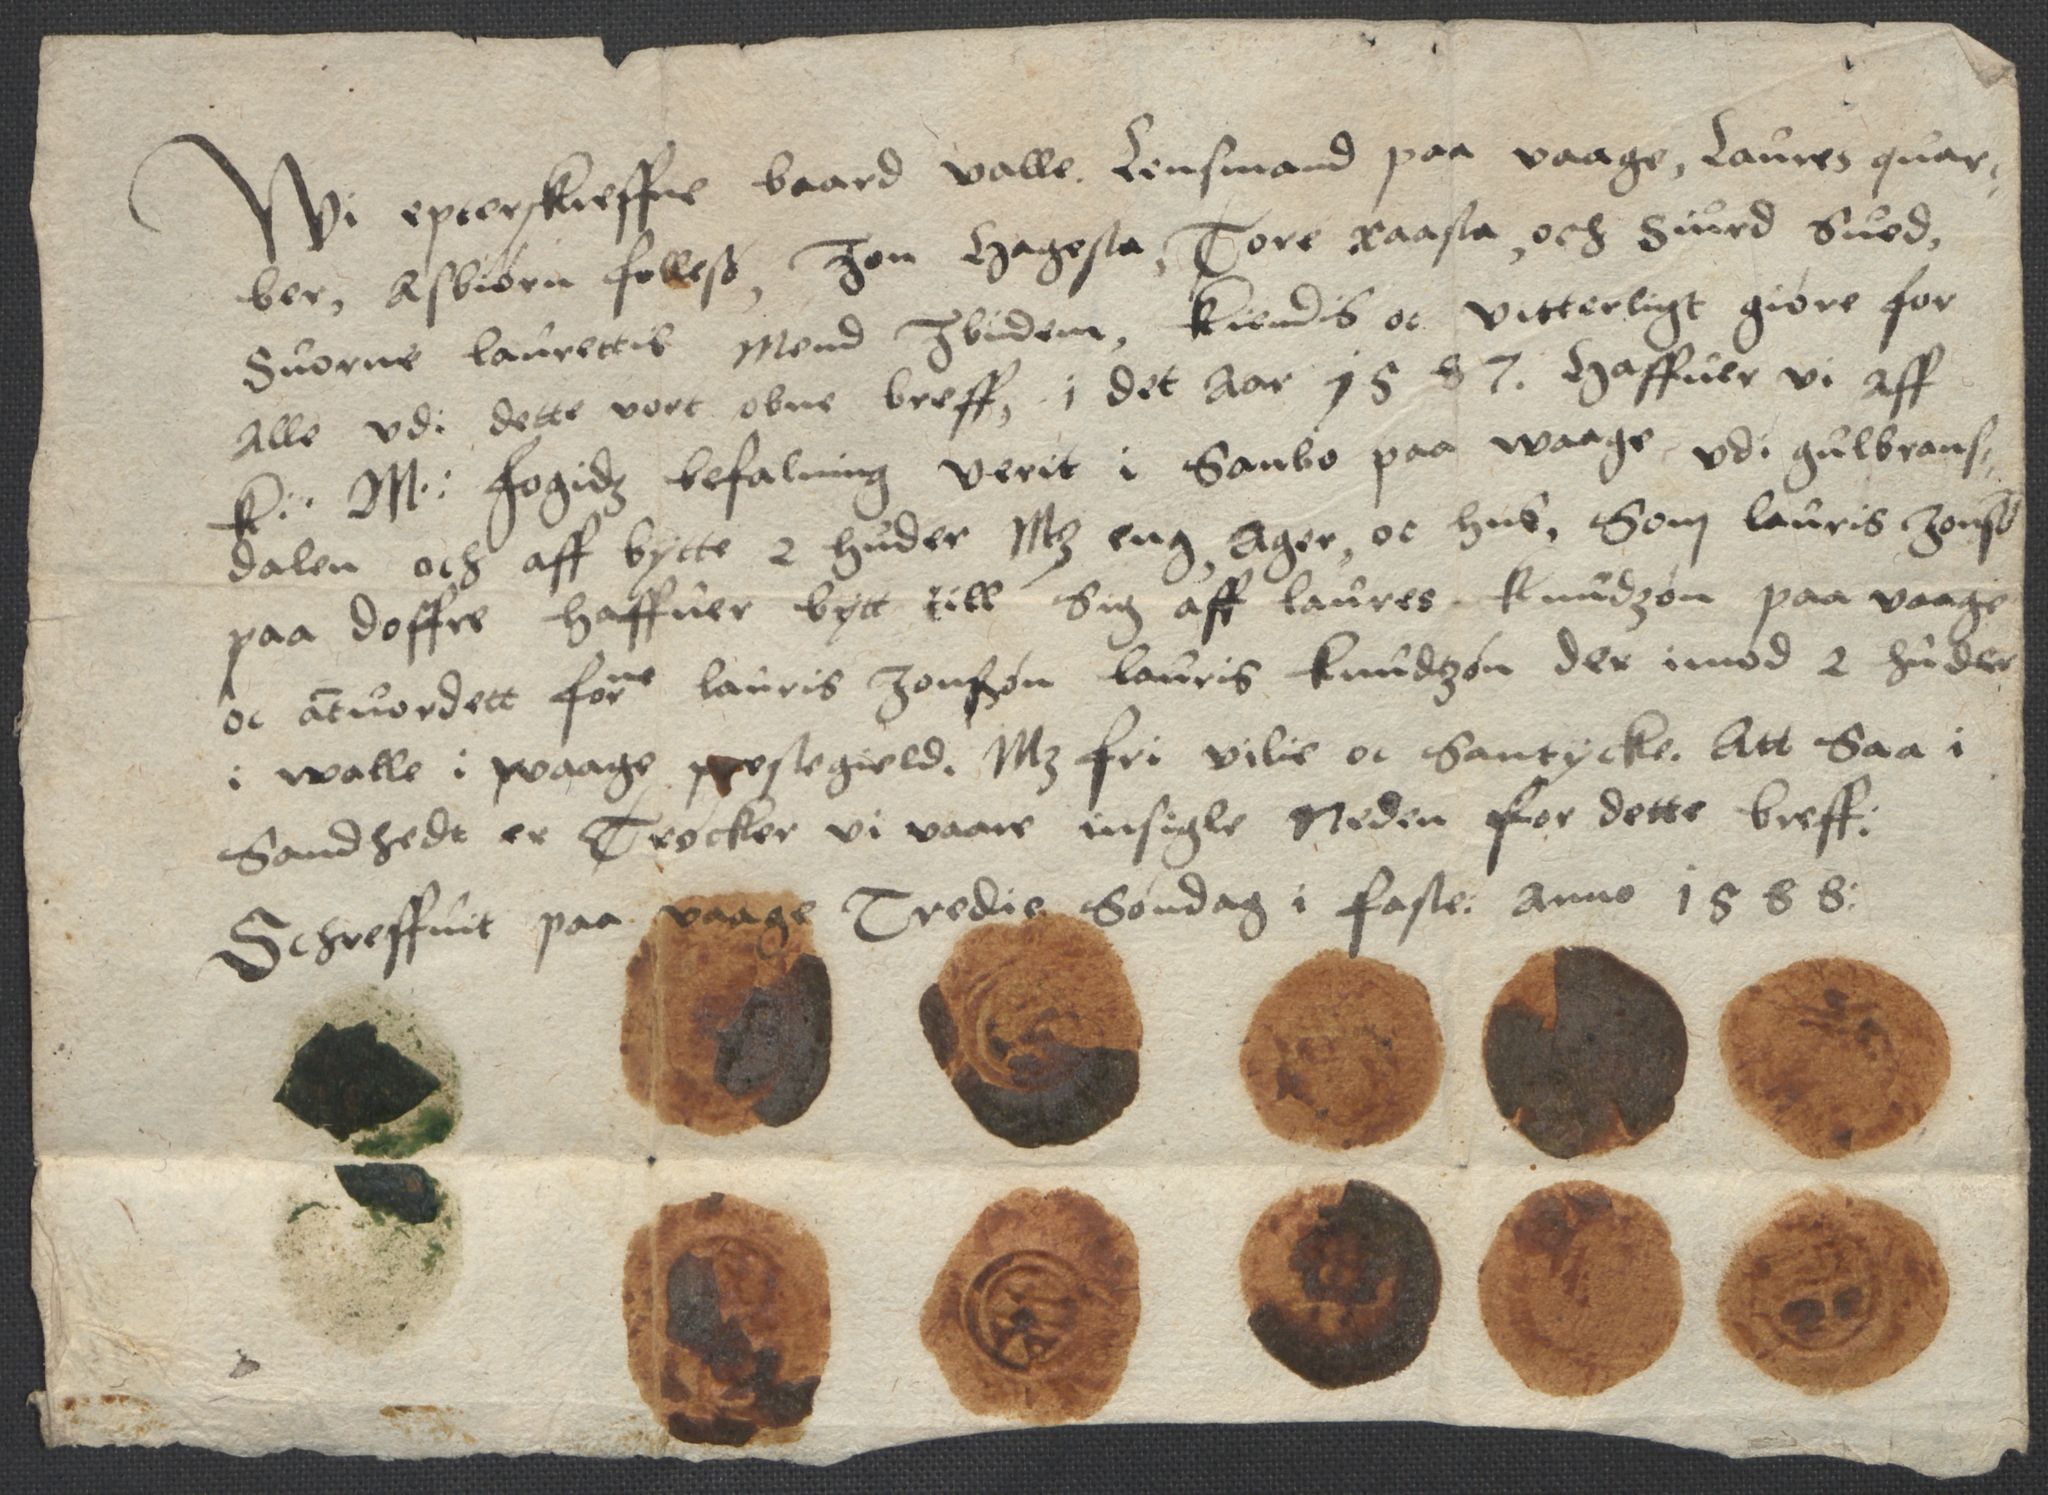 Wi epterskreffne baard valle. Lensmand paa vaage, Laures quar-
ber, Asbiørn follesß, Jon Hagesta, Tore xaasta, och Siurd Sued,
Suorne laurettis Mend Jbidem, kiendis oc vitterligt giøre for
Alle vdi dette vort obne breff, i det Aar 1587. Haffuer vi Aff
K: M: fogidz befalning verit i Sanbo paa waage vdi gulbrans-
dalen och aff bytte 2 huder Mz eng, Ager, oc hus, Som lauris Jonsø
paa doffre haffuer bytt till Sig aff laures Knudzøn paa vaage
oc atuordett forne lauris Jonssøn lauris Knudtzøn der imod 2 huder
i walle i waage prestegield. Mz fri vilie oc Santycke. Att Saa i
Sandhedt er Trøcker vi vaare insigle Neden for dette breff:
Schreffuit paa vaage Tredie Søndag i faste: Anno 1588: